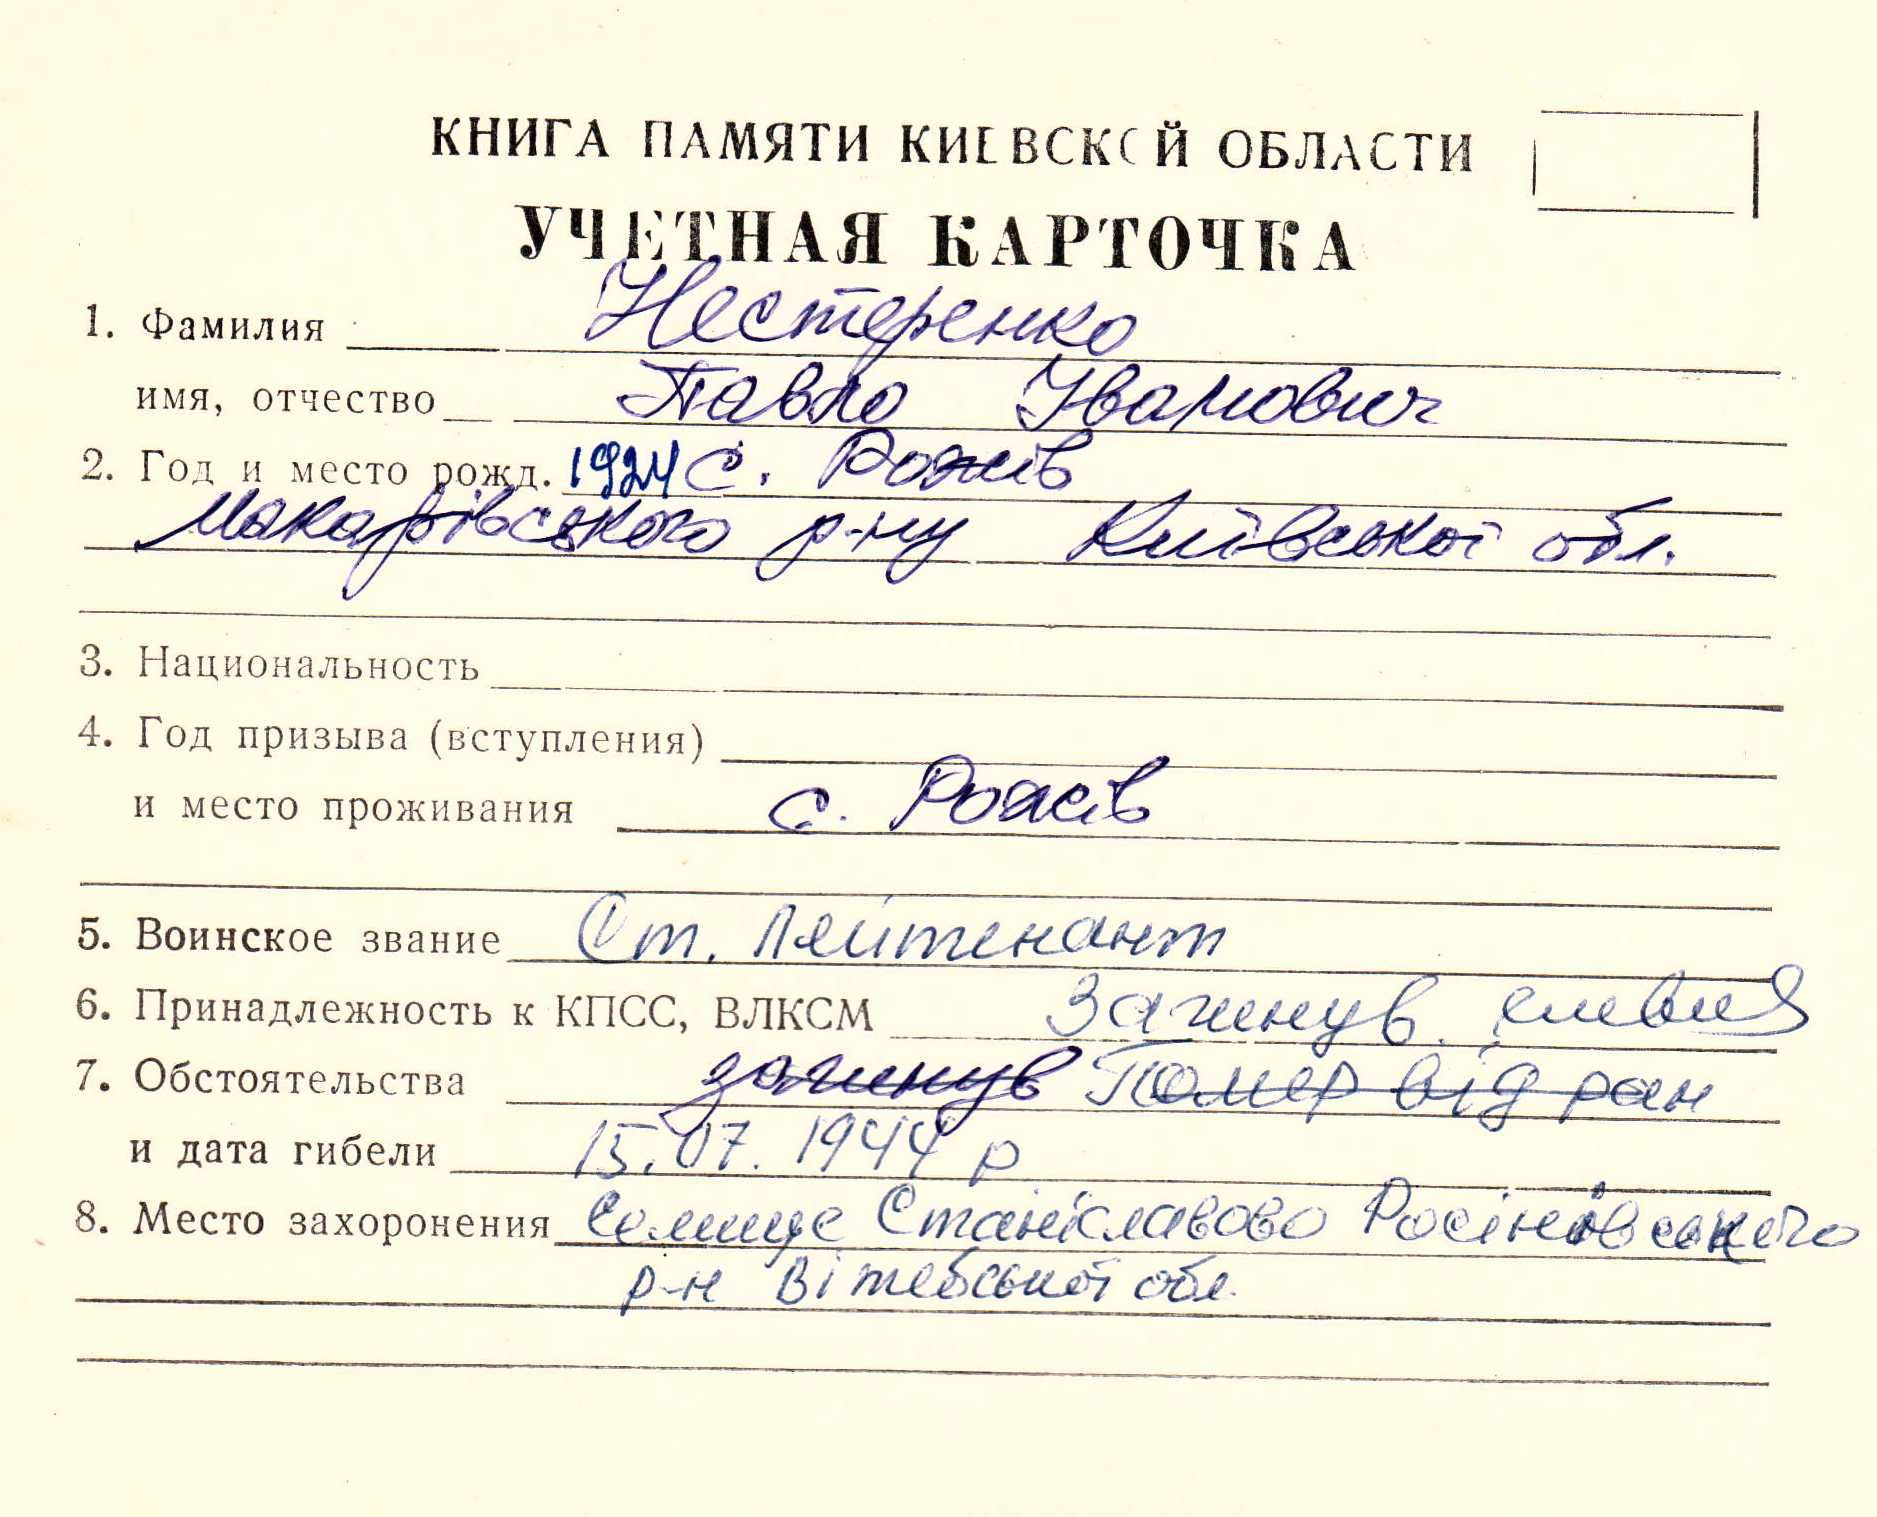 КНИГА ПАМЯТИ КИЕВСКОЙ ОБЛАСТИ
УЧЕТНАЯ КАРТОЧКА
1. Фамилия Нестеренко
имя, отчество Павло Іванович
2. Год и место рожд. 1924 с. Рожів
Макарівського р-ну Київської обл.
3. Национальность
4. Год призыва (вступления)
и место проживания с. Рожів
5. Воинское звание Ст. лейтенант
6. Принадлежность к КПСС, ВЛКСМ Загинув
7. Обстоятельства загинув Помер від ран
и дата гибели 15.07.1944 р
8. Место захоронения Селище Станіславово
р-н Вітебської обл.